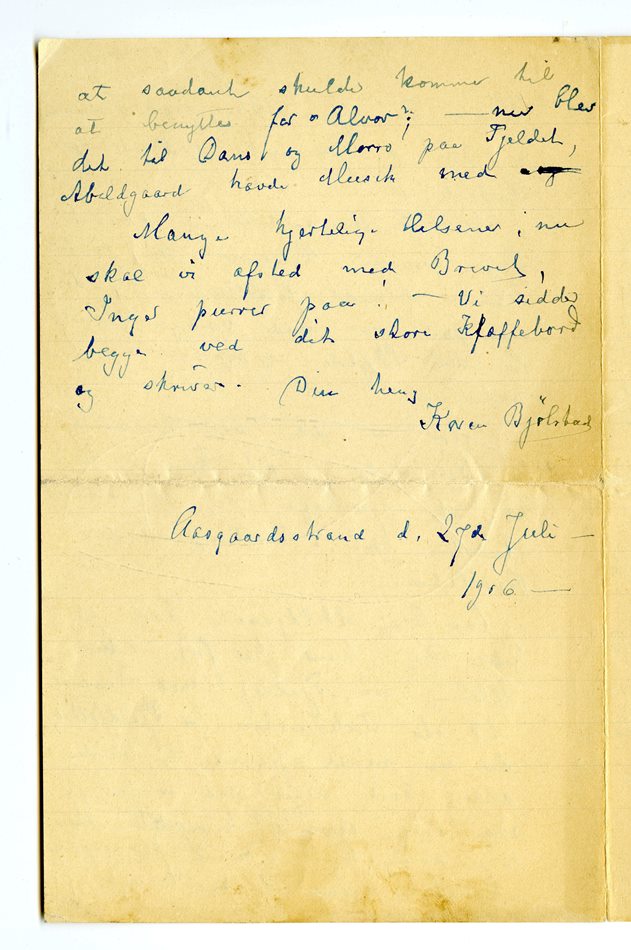 at saadant skulde komme til
at benyttes for Alvor; — nu blev
det til Dans og Morro paa Fjeldet,
Abildgaard havde Musik med
Mange hjertelige Hilsener; nu
skal vi afsted med Brevet,
Inger purrer paa! — Vi sidder
begge ved det store Kaffebord
og skriver. Din heng
Karen Bjölstad
Aasgaardsstrand d. 27de Juli —
1906 —